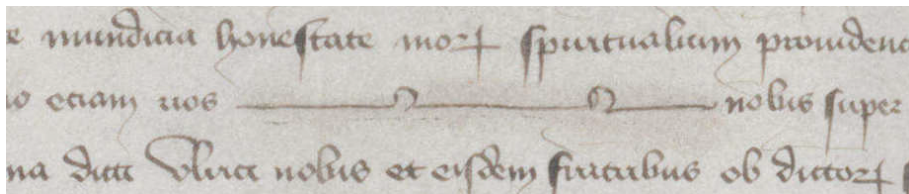 e mundicia honestate morꝝ spiritualium prouidenc
o eciam uos nobis super
na dicte nobis et eisdem fratribus ob dictorꝝ